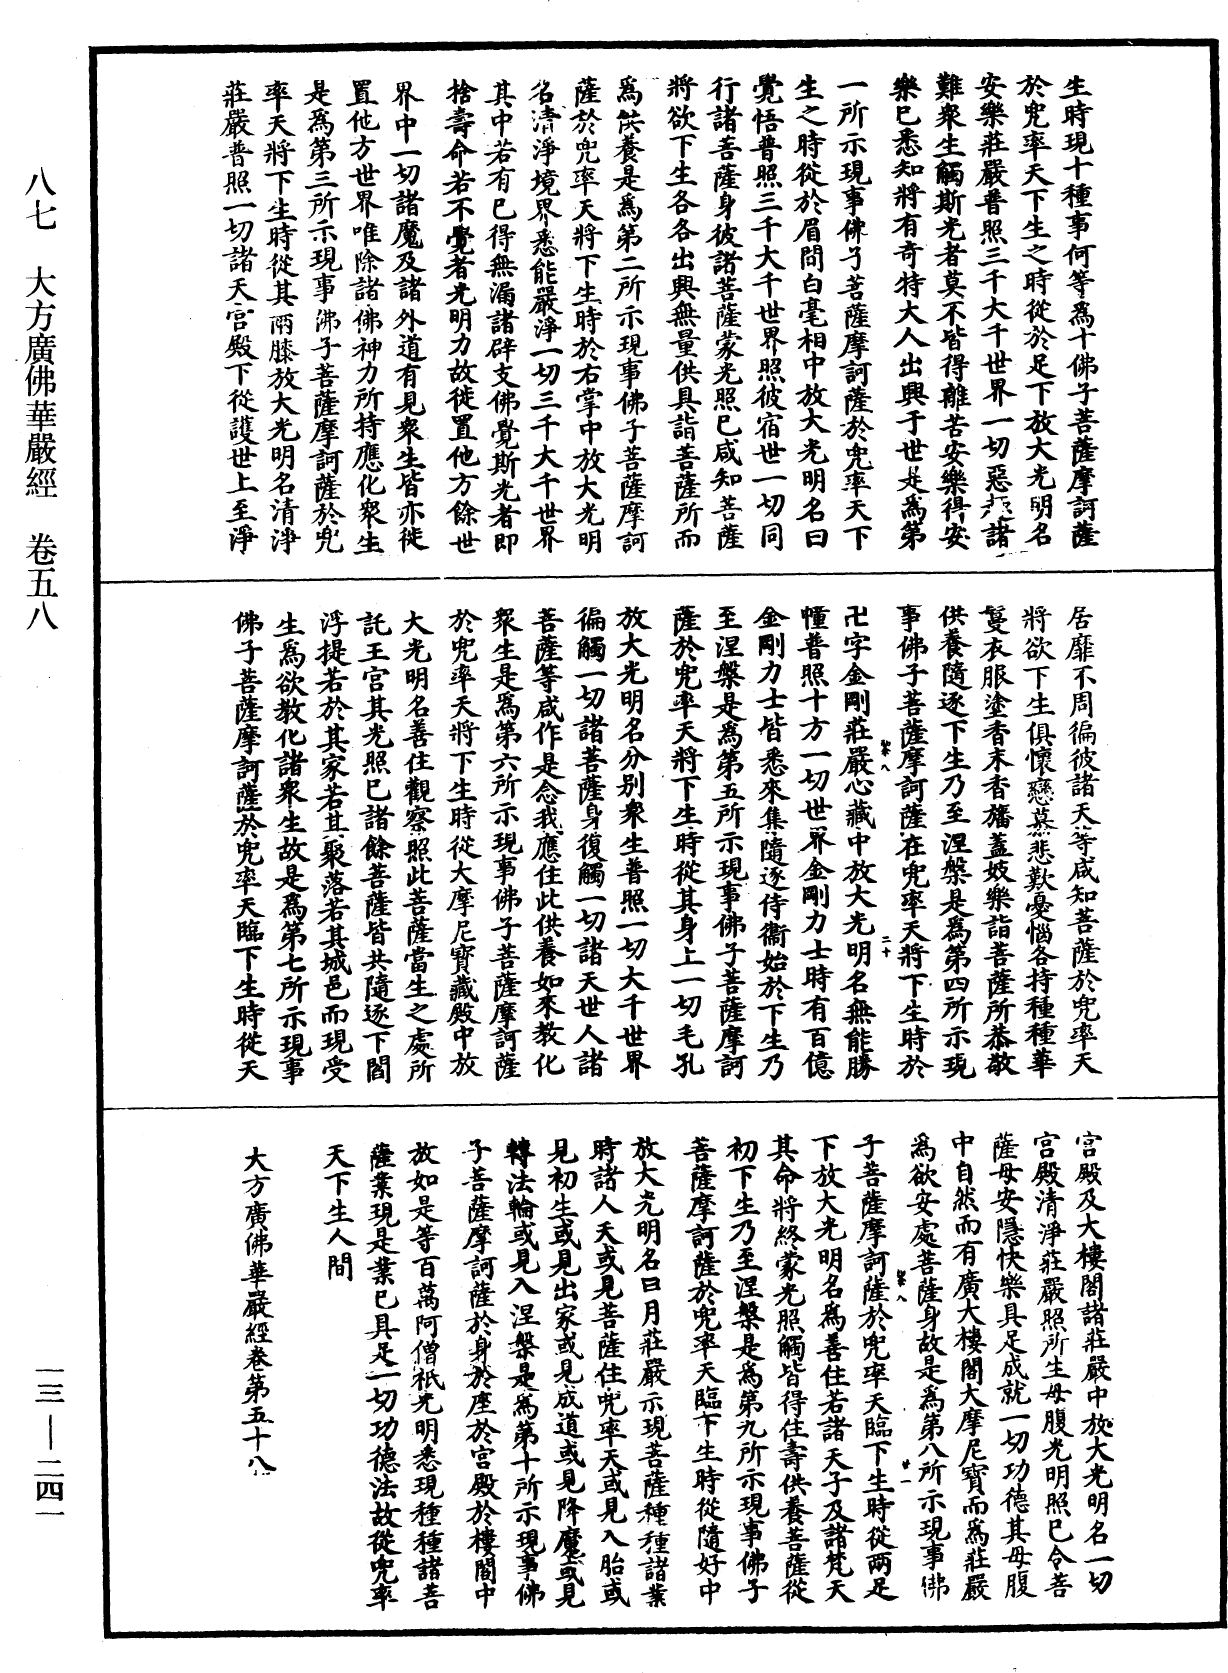 生時現十種事何等爲十佛子菩薩摩訶薩
於兜率天下生之時從於足下放大光明名
安樂莊嚴普照三千大千世界一切惡趣諸
難衆生觸斯光者莫不皆得離苦安樂得安
樂已悉知將有奇特大人出興于世是爲第
一所示現事佛子菩薩摩訶薩於兜率天下
生之時從於眉間白毫相中放大光明名曰
覺悟普照三千大千世界照彼宿世一切同
行諸菩薩身彼諸菩薩蒙光照已咸知菩薩
將欲下生各各出興無量供具詣菩薩所而
爲供養是爲第二所示現事佛子菩薩摩訶
薩於兜率天將下生時於右掌中放大光明
名清淨境界悉能嚴淨一切三千大千世界
其中若有已得無漏諸辟支佛覺斯光者即
捨壽命若不覺者光明力故徙置他方餘世
界中一切諸魔及諸外道有見衆生皆亦徙
置他方世界唯除諸佛神力所持應化衆生
是爲第三所示現事佛子菩薩摩訶薩於兜
率天將下生時從其兩膝放大光明名清淨
莊嚴普照一切諸天宮殿下從護世上至淨
居靡不周徧彼諸天等咸知菩薩於兜率天
將欲下生俱懷戀慕悲歎憂惱各持種種華
鬘衣服塗香末香旛蓋妓樂詣菩薩所恭敬
供養隨逐下生乃至涅槃是爲第四所示現
事佛子菩薩摩訶薩在兜率天將下生時於
卍字金剛莊嚴心藏中放大光明名無能勝
幢普照十方一切世界金剛力士時有百億
金剛力士皆悉來集隨逐侍衞始於下生乃
至涅槃是爲第五所示現事佛子菩薩摩訶
薩於兜率天將下生時從其身上一切毛孔
放大光明名分別衆生普照一切大千世界
徧觸一切諸菩薩身復觸一切諸天世人諸
菩薩等咸作是念我應住此供養如來教化
衆生是爲第六所示現事佛子菩薩摩訶薩
於兜率天將下生時從大摩尼寶藏殿中放
大光明名善住觀察照此菩薩當生之處所
託王宮其光照已諸餘菩薩皆共隨逐下閻
浮提若於其家若其聚落若其城邑而現受
生爲欲教化諸衆生故是爲第七所示現事
佛子菩薩摩訶薩於兜率天臨下生時從天
宮殿及大樓閣諸莊嚴中放大光明名一切
宮殿清淨莊嚴照所生母腹光明照已令菩
薩母安隱快樂具足成就一切功德其母腹
中自然而有廣大樓閣大摩尼寶而爲莊嚴
爲欲安處菩薩身故是爲第八所示現事佛
子菩薩摩訶薩於兜率天臨下生時從兩足
下放大光明名爲善住若諸天子及諸梵天
其命將終蒙光照觸皆得住壽供養菩薩從
初下生乃至涅槃是爲第九所示現事佛子
菩薩摩訶薩於兜率天臨下生時從隨好中
放大光明名曰月莊嚴示現菩薩種種諸業
時諸人天或見菩薩住兜率天或見入胎或
見初生或見出家或見成道或見降魔或見
轉法輪或見入涅槃是爲第十所示現事佛
子菩薩摩訶薩於身於座於宮殿於樓閣中
放如是等百萬阿僧祇光明悉現種種諸菩
薩業現是業已具足一切功德法故從兜率
天下生人間
大方廣佛華嚴經卷第五十八
八七　大方廣佛華嚴經　卷五八
一三—二四一